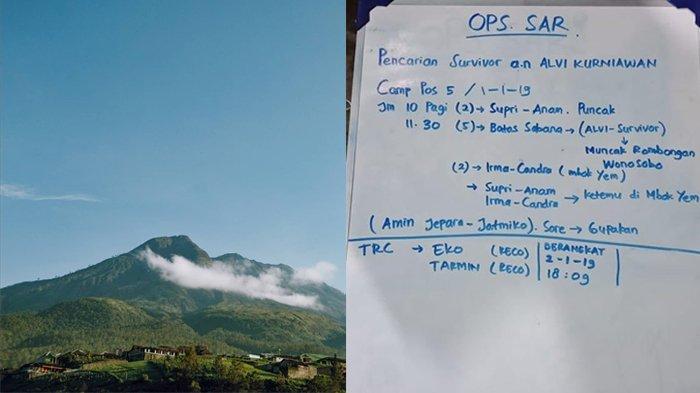 OPS. SAR.
Pencarian Survivor a.n ALVI KURNIAWAN
Camp Pos 5 / 1-1-19
Jm 10 Pagi (2) → Supri - Anam. Puncak
11.30 (5) → Batas Sabana → (ALVI-Survivor)
↓
Muncak Rombongan
Wonosobo
(2) → Irma-Candra (mbok Yem)
→ Supri-Anam
Irma-Candra → Ketemu di Mbok Yem
(Amin Jepara-Jatmiko). Sore → Gupakan
TRC → EKO (RECO) BERANGKAT
TARMIN (RECO) 2-1-19
18:09